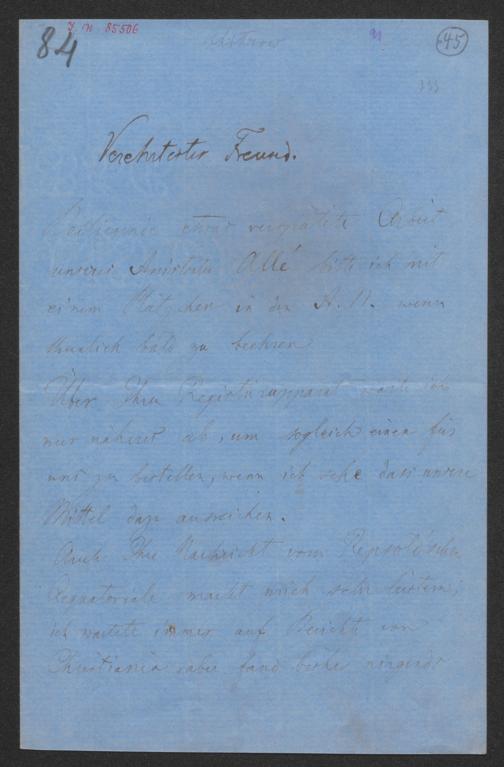 84
J. N. 85506
45
Verehrtester Freund.
Beiliegende etwas verspätete Arbeit
unseres Allé bitte ich mit
einem Plätzchen in den A. N. wenn
thunlich bald zu beehren
Über Ihren Registrirapparat warte ich
nur näheres ab, um sogleich einen für
uns zu bestellen, wenn ich sehe dass unsere
Mittel dazu ausreichen.
Auch Ihre Nachricht vom Repsold'schen
Aequatoriale macht mich sehr lüstern;
ich wartete immer auf Bericht von
Christiania aber fand bisher nirgends